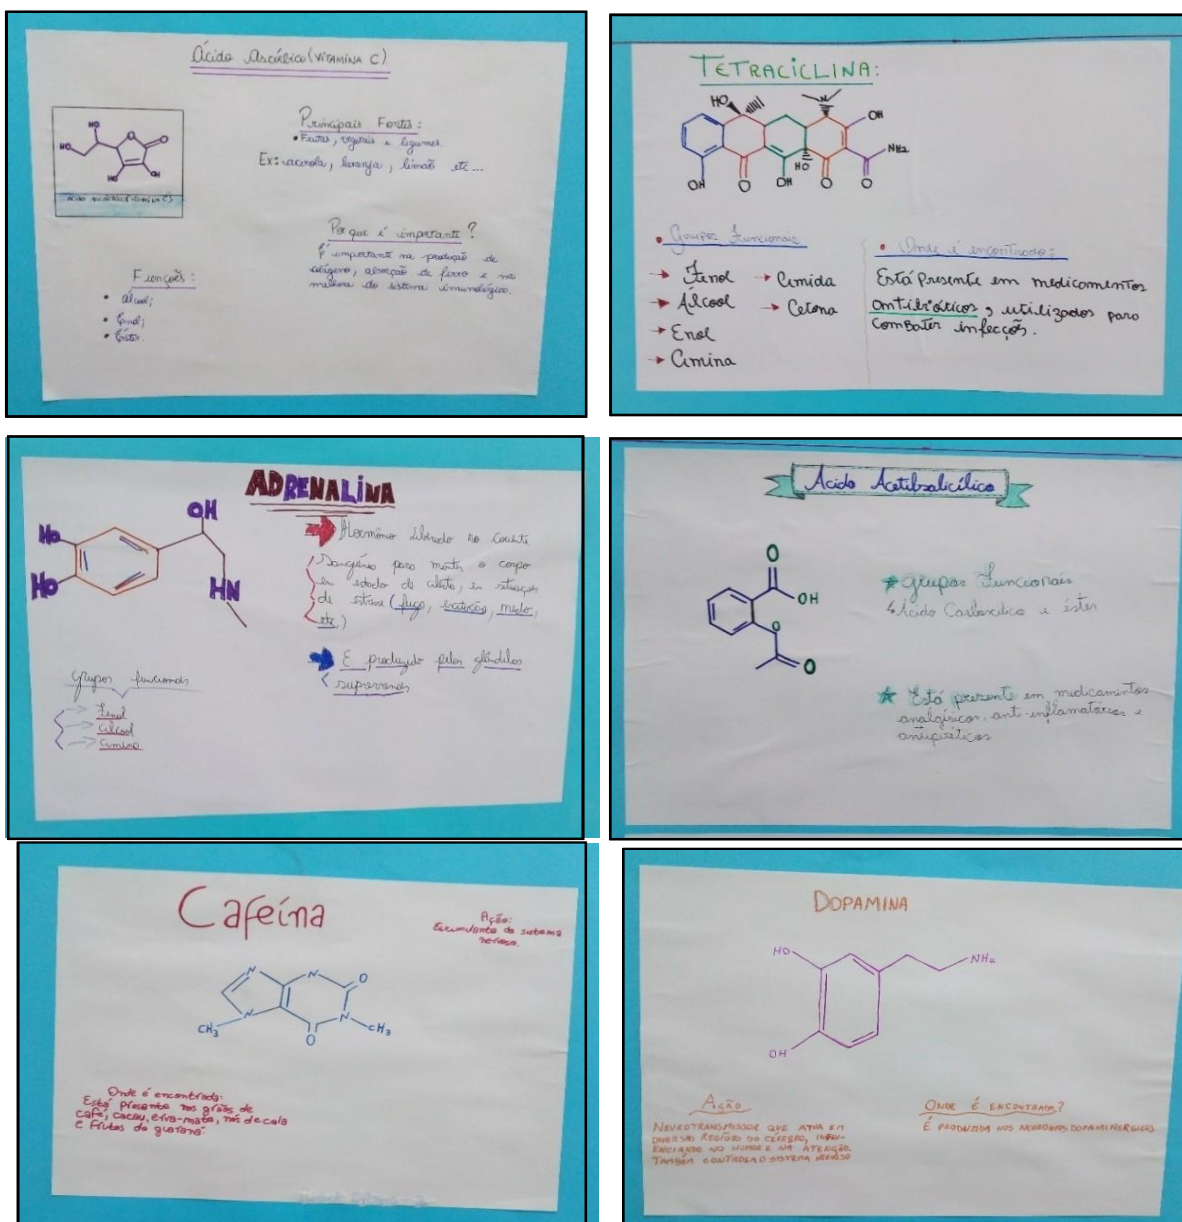 Ácido Ascórbico (VITAMINA C)
HO
HO
O
O
HO
OH
Ácido ascórbico (vitamina C)
Principais Fontes:
• Frutas, vegetais e legumes.
Ex: acerola, laranja, limão etc...
Por que é importante?
É importante na produção de
colágeno, absorção de ferro e na
melhora do sistema imunológico.
Funções:
• Álcool;
• Enol;
• Éster.
TETRACICLINA:
HO
N
OH
NH2
OH
O
OH
HO
O
O
• Grupos Funcionais
→ Fenol
→ Álcool
→ Enol
→ Amina
→ Amida
→ Cetona
• Onde é encontrado:
Está Presente em medicamentos
antibióticos, utilizados para
combater infecções.
ADRENALINA
OH
HO
HO
HN
Hormônio liberado na corrente
Sanguínea para manter o corpo
em estado de alerta, em situações
de stress (fuga, medo,
etc)
É produzido pelas glândulas
suprarrenais
Grupos funcionais
Fenol
Álcool
Amina
Ácido Acetilsalicílico
O
OH
O
O
Grupos Funcionais
↳ Ácido Carboxílico e éster
Está presente em medicamentos
analgésicos, anti-inflamatórios e
antipiréticos
Cafeína
Ação:
Estimulante do sistema
nervoso.
N
N
O
N
N
CH3
CH3
O
Onde é encontrada:
Está presente nos grãos de
café, cacau, erva-mate, nós de cola
e frutos do guaraná.
DOPAMINA
HO
NH2
OH
Ação
NEUROTRANSMISSOR QUE ATUA EM
DIVERSAS REGIÕES DO CÉREBRO, INFLU-
ENCIANDO NO HUMOR E NA ATENÇÃO.
TAMBÉM CONTROLA O SISTEMA NERVOSO
ONDE É ENCONTRADA?
É PRODUZIDA NOS NEURÔNIOS DOPAMINÉRGICOS